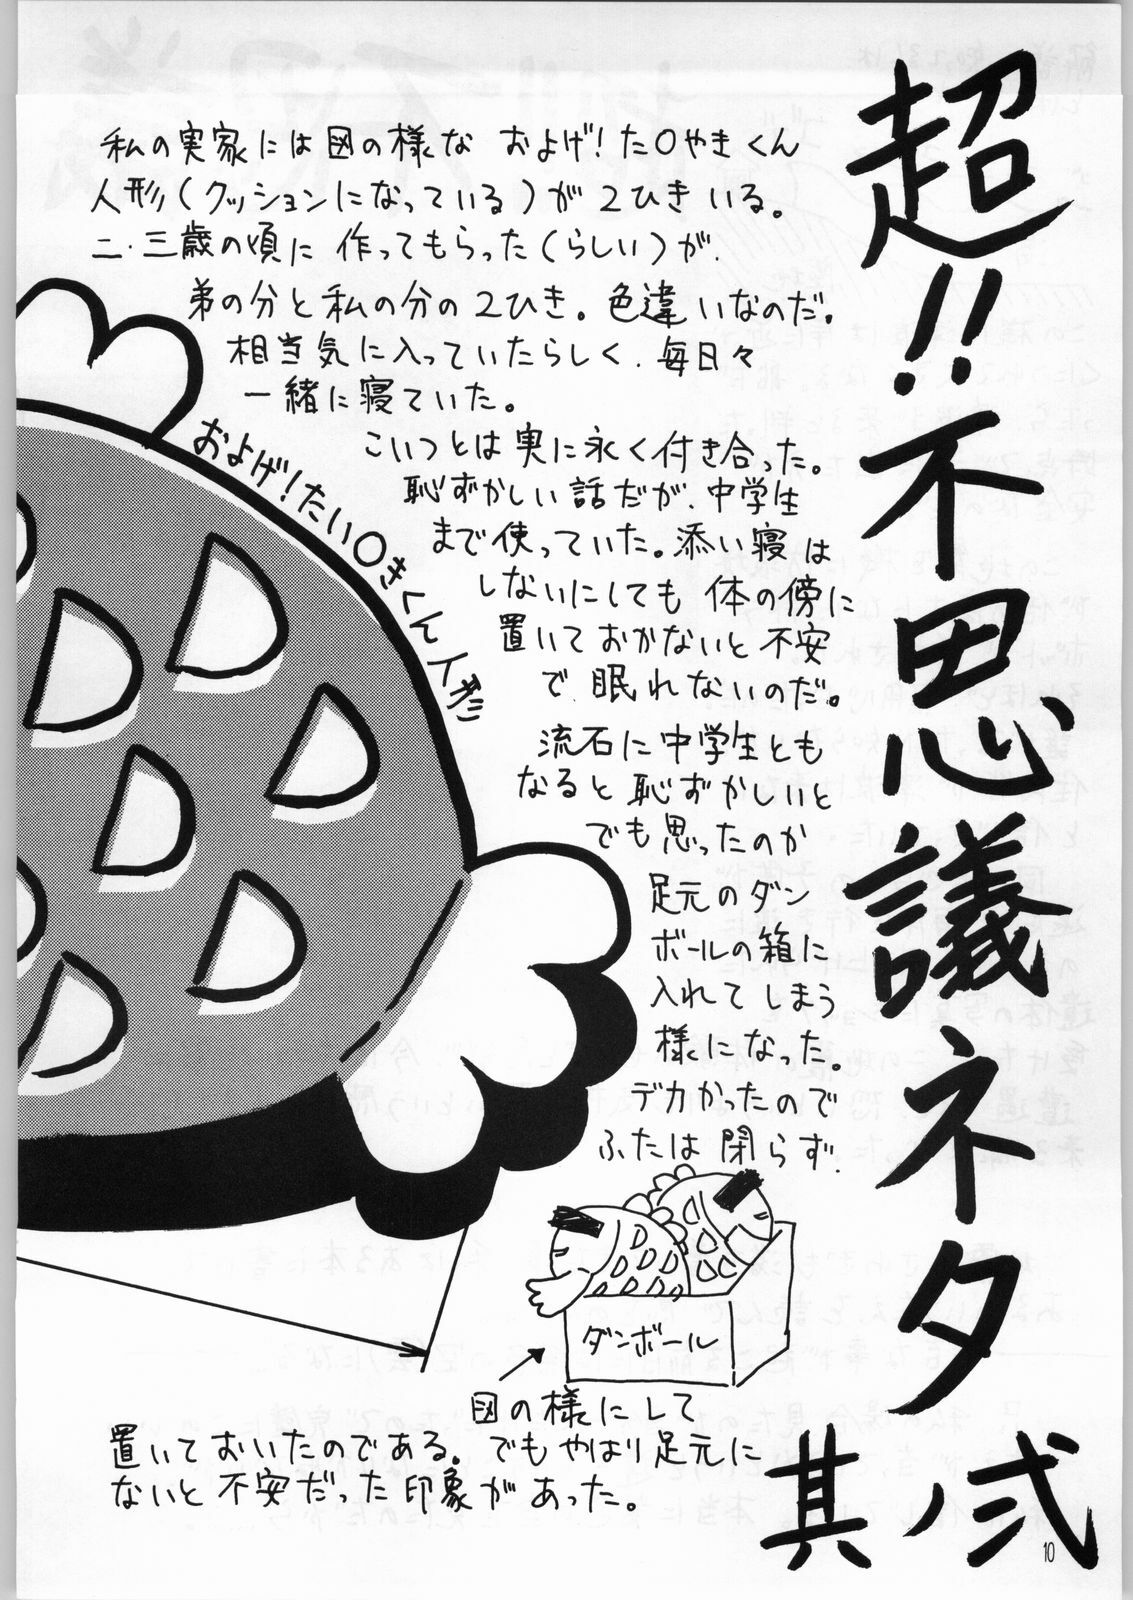 超!!不思議ネタ
其ノ弐
私の実家には図の様な およげ!た〇やきくん
人形(クッションになっている)が2ひきいる。
二、三歳の頃に 作ってもらった(らしい)が、
弟の分と私の分の2ひき。色違いなのだ。
相当気に入っていたらしく、毎日々
一緒に寝ていた。
こいつとは実に永く付き合った。
恥ずかしい話だが、中学生
まで使っていた。添い寝は
しないにしても 体の傍に
置いておかないと 不安
で 眠れないのだ。
流石に中学生とも
なると恥ずかしいと
でも思ったのか
足元のダン
ボールの箱に
入れてしまう
様になった。
デカかったので
ふたは閉らず、
図の様にして
置いておいたのである。でもやはり足元に
ないと 不安だった 印象があった。
およげ!たい〇きくん人形
ダンボール
10